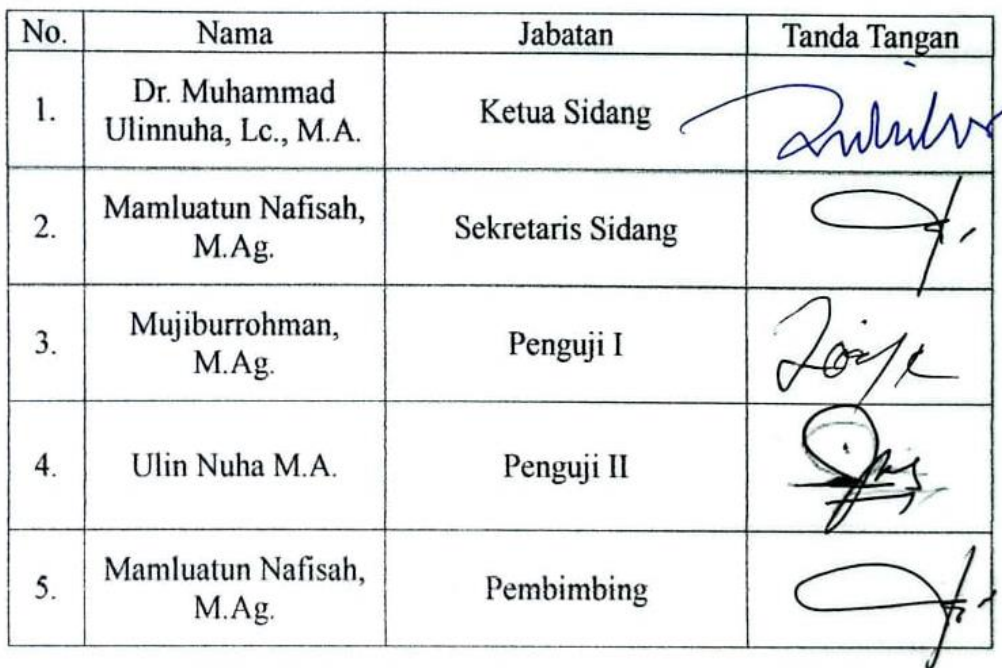 No. Nama Jabatan Tanda Tangan
1. Dr. Muhammad Ulinnuha, Lc., M.A. Ketua Sidang
2. Mamluatun Nafisah, M.Ag. Sekretaris Sidang
3. Mujiburrohman, M.Ag. Penguji I
4. Ulin Nuha M.A. Penguji II
5. Mamluatun Nafisah, M.Ag. Pembimbing